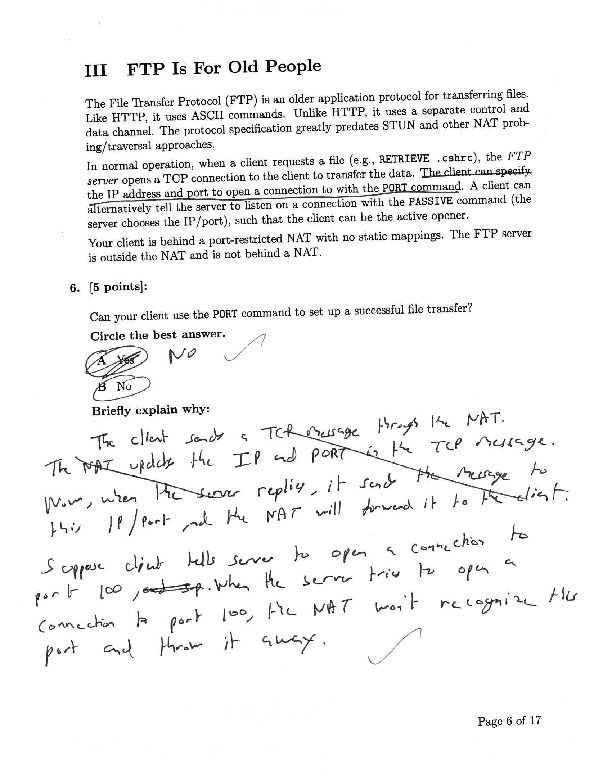 III FTP Is For Old People
The File Transfer Protocol (FTP) is an older application protocol for transferring files.
Like HTTP, it uses ASCII commands. Unlike HTTP, it uses a separate control and
data channel. The protocol specification greatly predates STUN and other NAT prob-
ing/traversal approaches.
In normal operation, when a client requests a file (e.g., RETRIEVE .cshrc), the FTP
server opens a TCP connection to the client to transfer the data. The client can specify
the IP address and port to open a connection to with the PORT command. A client can
alternatively tell the server to listen on a connection with the PASSIVE command (the
server chooses the IP/port), such that the client can be the active opener.
Your client is behind a port-restricted NAT with no static mappings. The FTP server
is outside the NAT and is not behind a NAT.
6. [5 points]:
Can your client use the PORT command to set up a successful file transfer?
Circle the best answer.
A Yes NO
B No
Briefly explain why:
The client sends a TCP message through the NAT.
The NAT updates the IP and PORT in the TCP message.
Now, when the server replies, it sends the message to
this IP/port and the NAT will forward it to the client.
Suppose client tells server to open a connection to
port 100, When the server tries to open a
connection to port 100, the NAT won't recognize this
port and throw it away.
Page 6 of 17